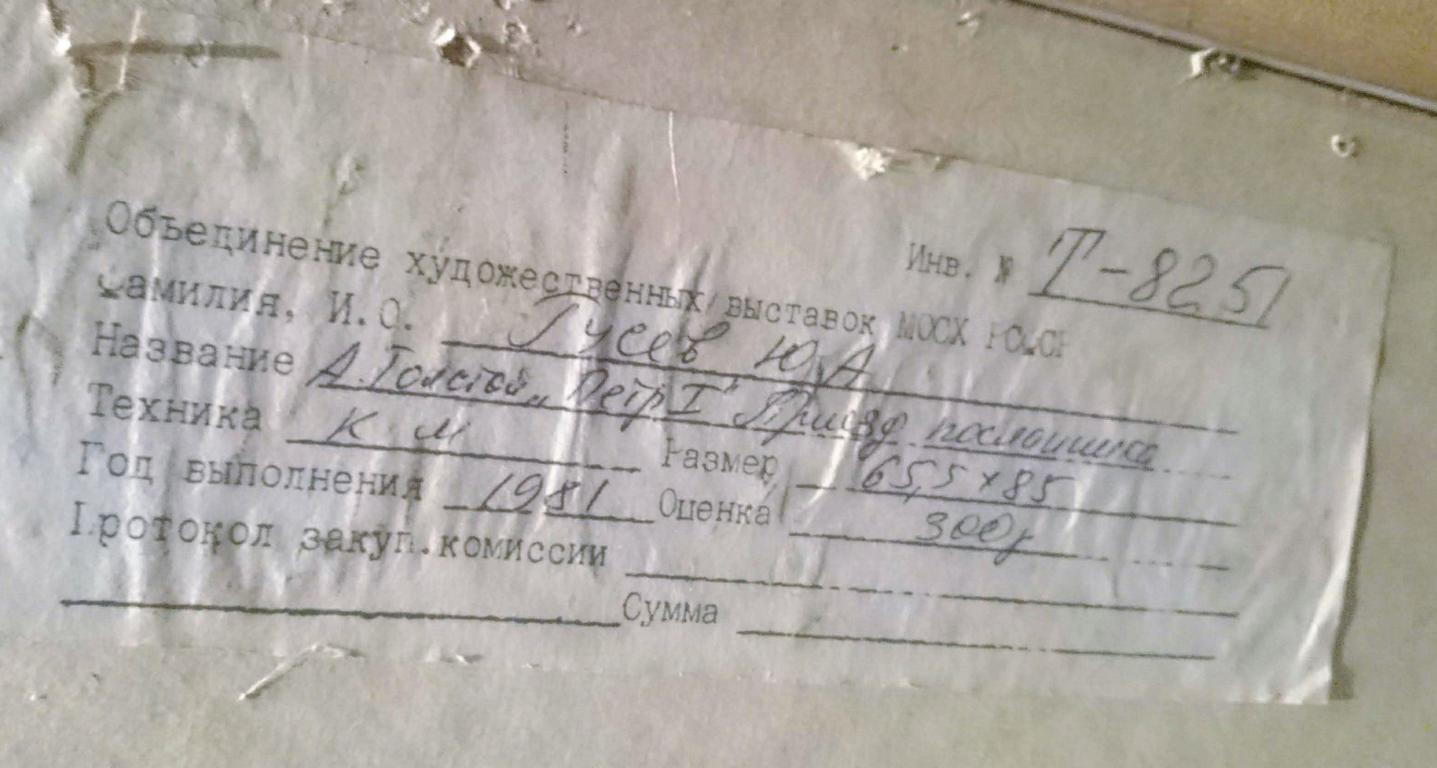 Инв. № Т-825
Объединение художественных выставок МОСХ РСФСР
Фамилия, И.О. Гусев Ю.А
Название А.Толстой „Петр I" Приезд
Техника к м Размер 65,5 x 85
Год выполнения 1981 Оценка 300р
Протокол закуп.комиссии
Сумма